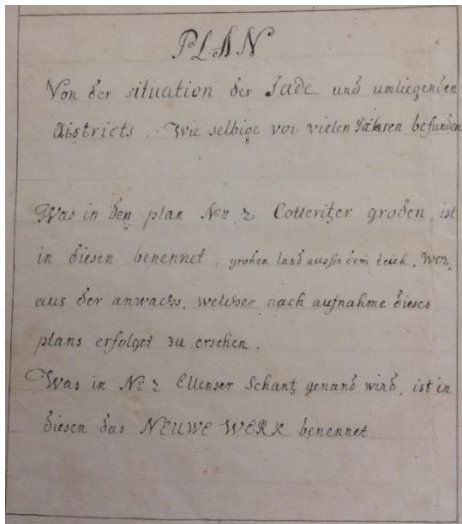 PLAN
Von der situation der Jade und umliegenden
districts. Wie selbige vor vielen Jahren befunden
Was in den plan No 2 Cotteritzer groden, ist
in diesen benennet, groden land ausser dem teich. Wor
aus der anwachs, welcher nach aufnahme dieses
plans erfolget zu ersehen.
Was in No 2 Ellenser Schantz genand wird, ist in
diesen das NEUWE WERK benennet.